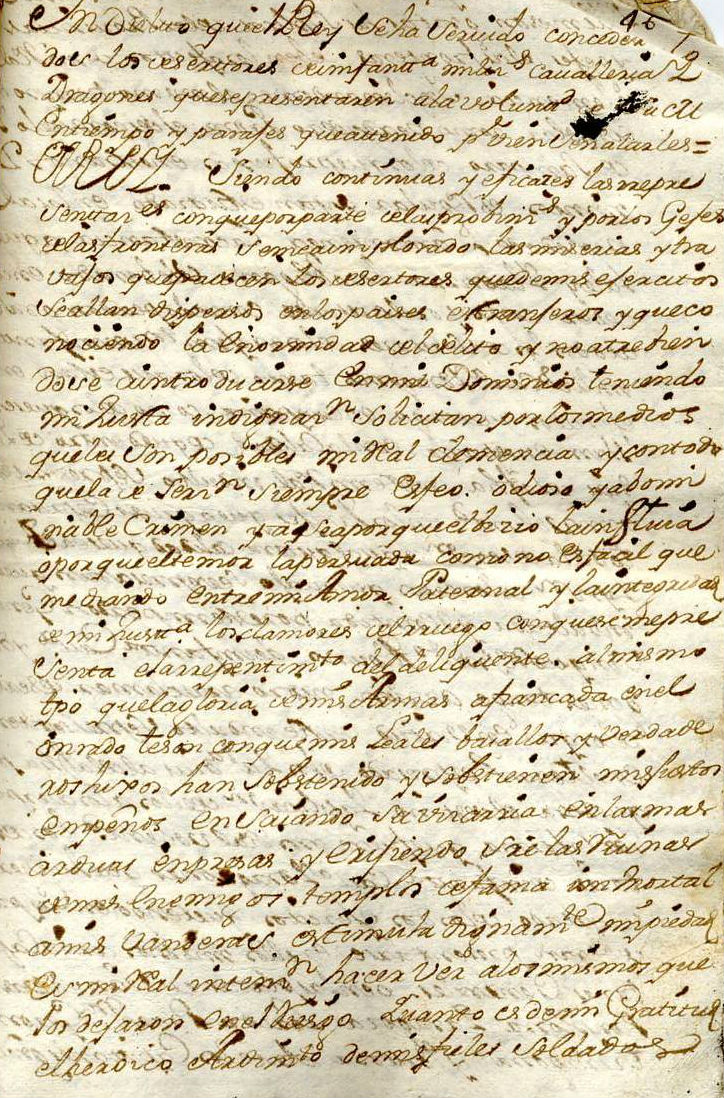 46
Yndulto que el Rey Se ha Servido conceder
2
dose los desertores de infantª milis cavalleria
Dragones que se presentaren a la volunad de
En tiempo y parajes que a tenido pr vien Señalarles =
EL REY. Siendo continuas y eficazes las repre
sentaes con que por parte de y por los Gefes
de las fronteras se me a implorado las miserias y tra
vajos que padecen los desertores que de mis ejercitos
se allan dispersos en los paises extranjeros y que co
nociendo la enormidad del delito y no atrebien
dose a introducirse en mis Dominios temiendo
mi Justa indignan solicitan por los medios
que les son posibles mi Real clemencia y con todo
que la de sern siempre es feo. odioso y abomi
nable Crimen y a sea por que el bizio la influia
o por que el temor la persuada como no es facil que
mediando entre mi Amor Paternal y la integridad
de mi Justª los clamores del ruego con que se me pre
senta el arrepentimto del deliquente. al mismo
tpo que la gloria de mis Armas afiancada en el
onrado teson con que mis Leales basallos y verdade
ros hixos han sobstenido y sobstienen mis justos
empeños en las mas
arduas enpresas y erijiendo sre las Ruinas
de mis Enemigos templos de fama inmortal
a mis vanderas estimula dignamte mi piedad
Es mi Real intenn hacer ver a los mismos que
los dejaron en el Riesgo Quanto es de mi Gratitud
el heroico Ardimto de mis fieles Soldados